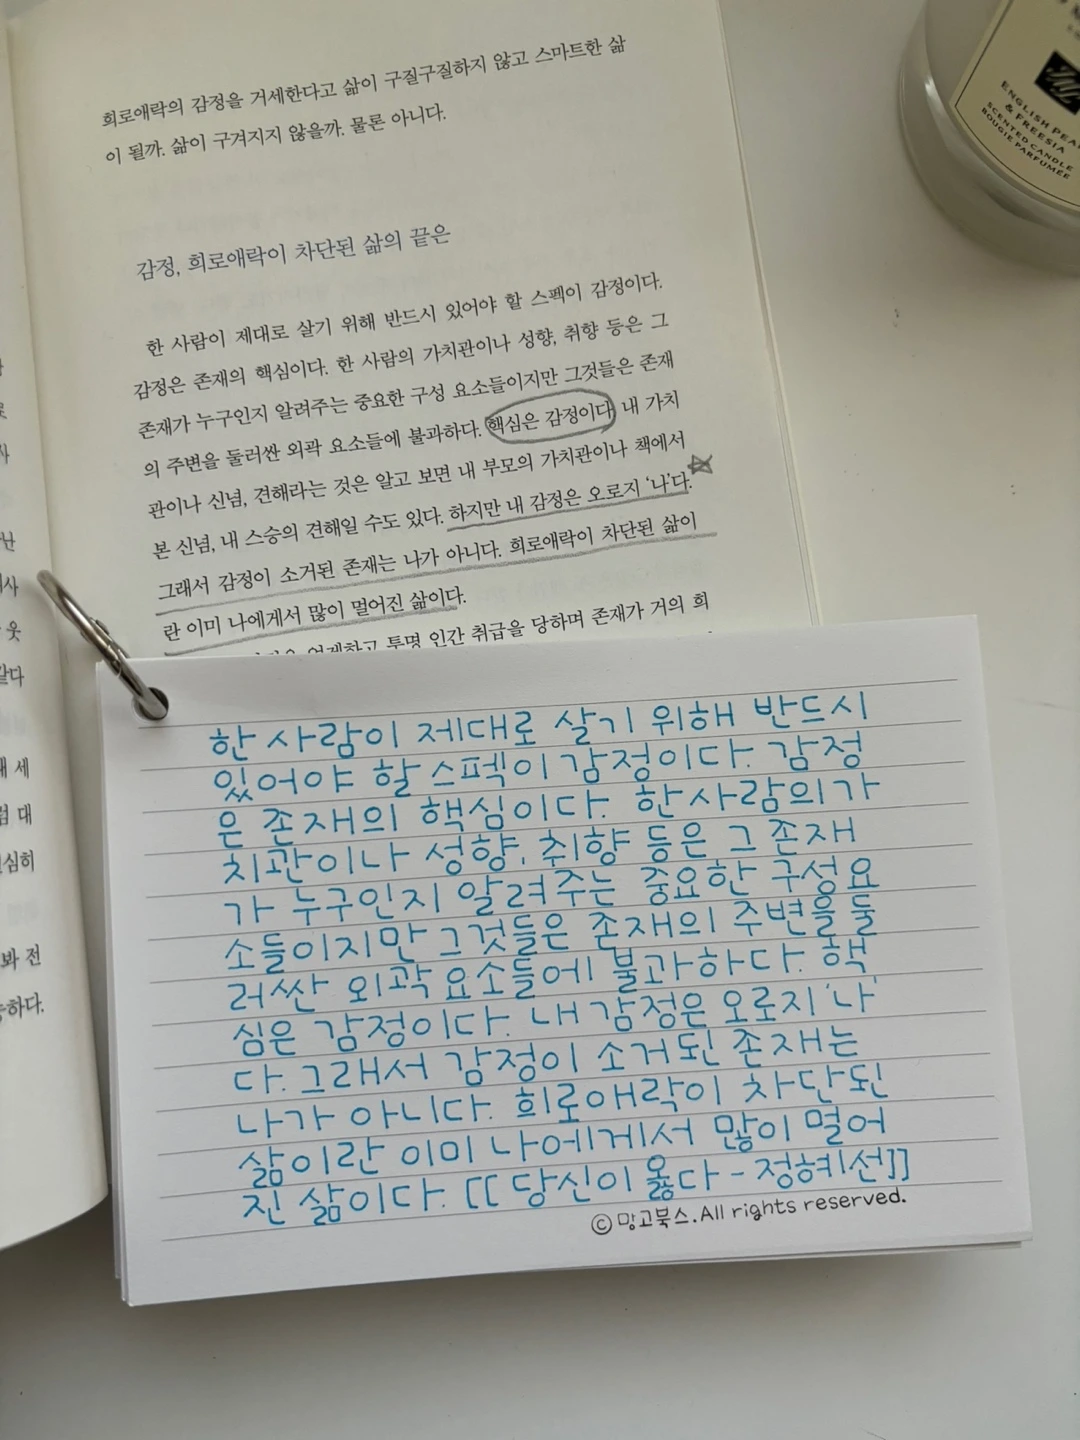 희로애락의 감정을 거세한다고 삶이 구질구질하지 않고 스마트한 삶
이 될까. 삶이 구겨지지 않을까. 물론 아니다.
감정, 희로애락이 차단된 삶의 끝은
한 사람이 제대로 살기 위해 반드시 있어야 할 스펙이 감정이다.
감정은 존재의 핵심이다. 한 사람의 가치관이나 성향, 취향 등은 그
존재가 누구인지 알려주는 중요한 구성 요소들이지만 그것들은 존재
의 주변을 둘러싼 외곽 요소들에 불과하다. 핵심은 감정이다. 내 가치
관이나 신념, 견해라는 것은 알고 보면 내 부모의 가치관이나 책에서
본 신념, 내 스승의 견해일 수도 있다. 하지만 내 감정은 오로지 '나'다.
그래서 감정이 소거된 존재는 나가 아니다. 희로애락이 차단된 삶이
란 이미 나에게서 많이 멀어진 삶이다.
억제하고 투명 인간 취급을 당하며 존재가 거의 희
사
난
웃
같다
대 세
럼 대
심히
봐 전
하다.
한 사람이 제대로 살기 위해 반드시
있어야 할 스펙이 감정이다. 감정
은 존재의 핵심이다. 한 사람의 가
치관이나 성향, 취향 등은 그 존재
가 누구인지 알려주는 중요한 구성 요
소들이지만 그것들은 존재의 주변을 둘
러싼 외곽 요소들에 불과하다. 핵
심은 감정이다. 내 감정은 오로지 '나'
다. 그래서 감정이 소거된 존재는
나가 아니다. 희로애락이 차단된
삶이란 이미 나에게서 많이 멀어
진 삶이다. [[당신이 옳다 - 정혜선]]
ⓒ망고북스. All rights reserved.
ENGLISH PEA
& FREESIA
SCENTED CANDLE
BOUGIE PARFUMÉE